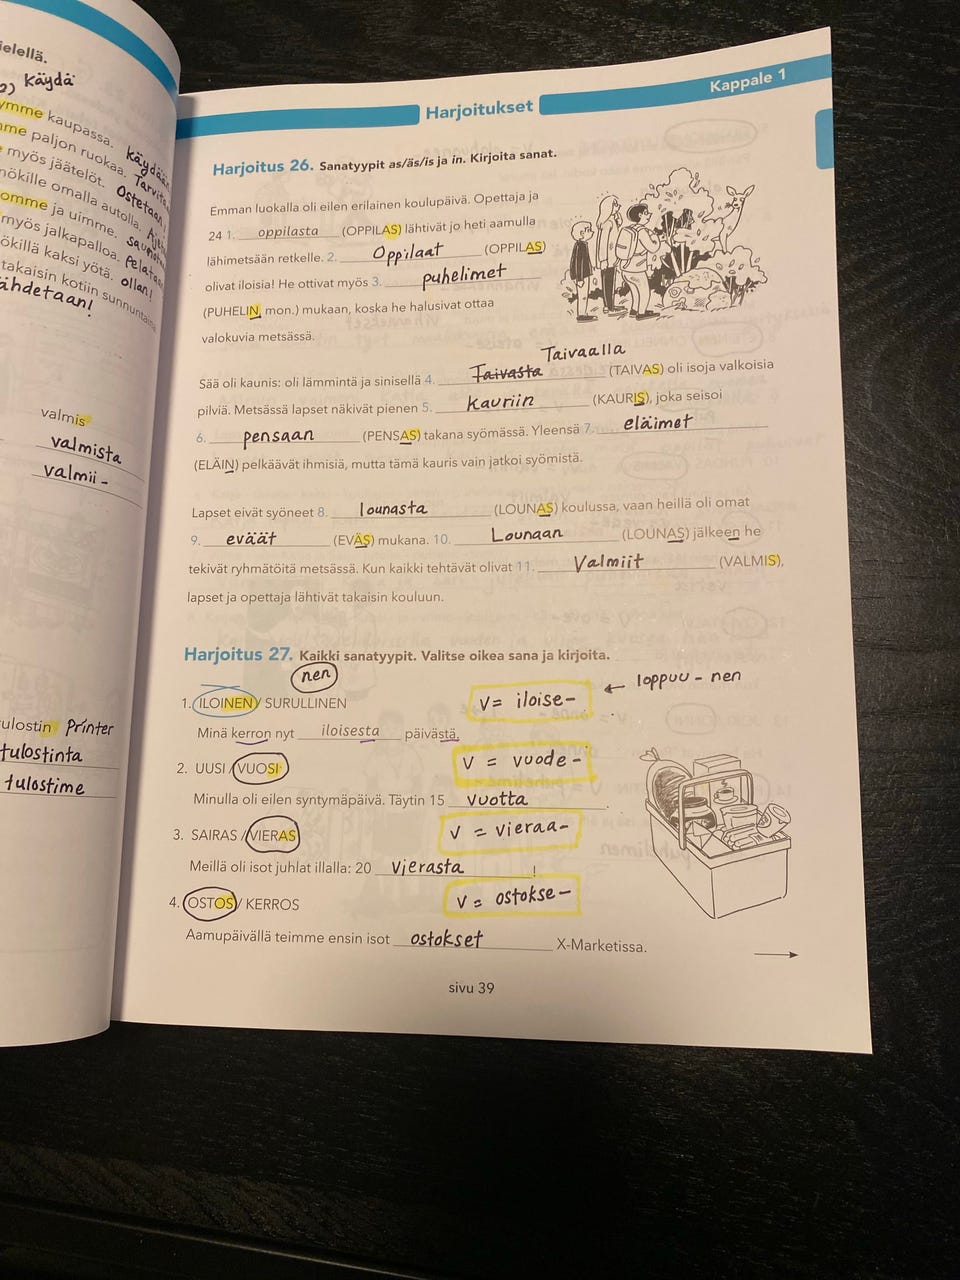 ielellä.
käydä
ymme kaupassa. käydään
me paljon ruokaa. Tarvita
myös jäätelöt. Ostetaan!
mökille omalla autolla.
omme ja uimme.
myös jalkapalloa. pelataan
ökillä kaksi yötä. ollan!
takaisin kotiin sunnuntaina
ähdetaan!
valmis
valmista
valmii-
ulostin Printer
tulostinta
tulostime
Kappale 1
Harjoitukset
Harjoitus 26. Sanatyypit as/äs/is ja in. Kirjoita sanat.
Emman luokalla oli eilen erilainen koulupäivä. Opettaja ja
24 1. oppilasta (OPPILAS) lähtivät jo heti aamulla
lähimetsään retkelle. 2. Oppilaat (OPPILAS)
olivat iloisia! He ottivat myös 3. puhelimet
(PUHELIN, mon.) mukaan, koska he halusivat ottaa
valokuvia metsässä.
Taivaalla
Sää oli kaunis: oli lämmintä ja sinisellä 4. Taivasta (TAIVAS) oli isoja valkoisia
pilviä. Metsässä lapset näkivät pienen 5. kauriin (KAURIS), joka seisoi
6. pensaan (PENSAS) takana syömässä. Yleensä 7. eläimet
(ELÄIN) pelkäävät ihmisiä, mutta tämä kauris vain jatkoi syömistä.
Lapset eivät syöneet 8. lounasta (LOUNAS) koulussa, vaan heillä oli omat
9. eväät (EVÄS) mukana. 10. Lounaan (LOUNAS) jälkeen he
tekivät ryhmätöitä metsässä. Kun kaikki tehtävät olivat 11. Valmiit (VALMIS),
lapset ja opettaja lähtivät takaisin kouluun.
Harjoitus 27. Kaikki sanatyypit. Valitse oikea sana ja kirjoita.
nen
1. ILOINEN / SURULLINEN V= iloise- ← loppuu - nen
Minä kerron nyt iloisesta päivästä.
2. UUSI / VUOSI V = vuode-
Minulla oli eilen syntymäpäivä. Täytin 15 vuotta.
3. SAIRAS / VIERAS V = vieraa-
Meillä oli isot juhlat illalla: 20 vierasta!
4. OSTOS / KERROS V = ostokse-
Aamupäivällä teimme ensin isot ostokset X-Marketissa.
sivu 39